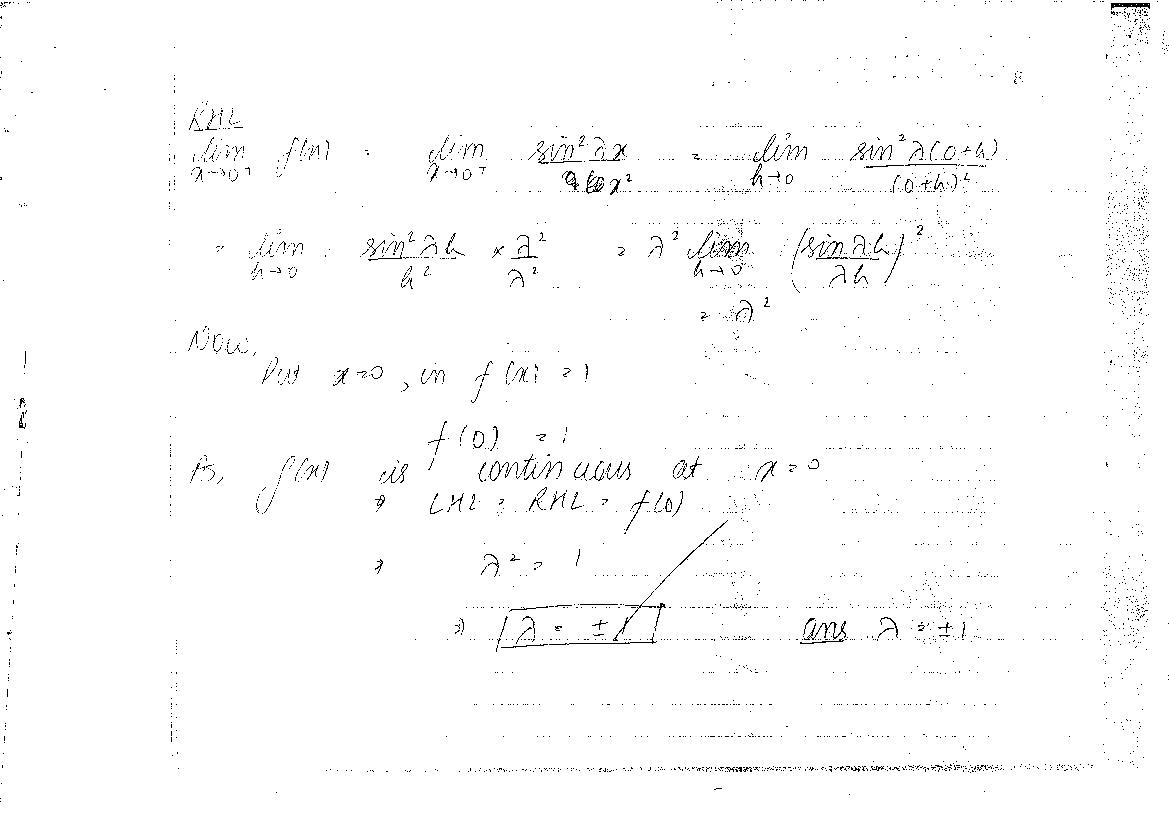 8
RHL
lim x→0⁺ f(x) = lim x→0⁺ sin²λx / x² = lim h→0 sin²λ(0+h) / (0+h)²
= lim h→0 sin²λh / h² × λ² / λ² = λ² lim h→0 (sinλh / λh)²
= λ²
Now,
Put x=0, in f(x) = 1
f(0) = 1
As, f(x) is continuous at x=0
⇒ LHL = RHL = f(0)
⇒ λ² = 1
⇒ λ = ±1 ans λ = ±1